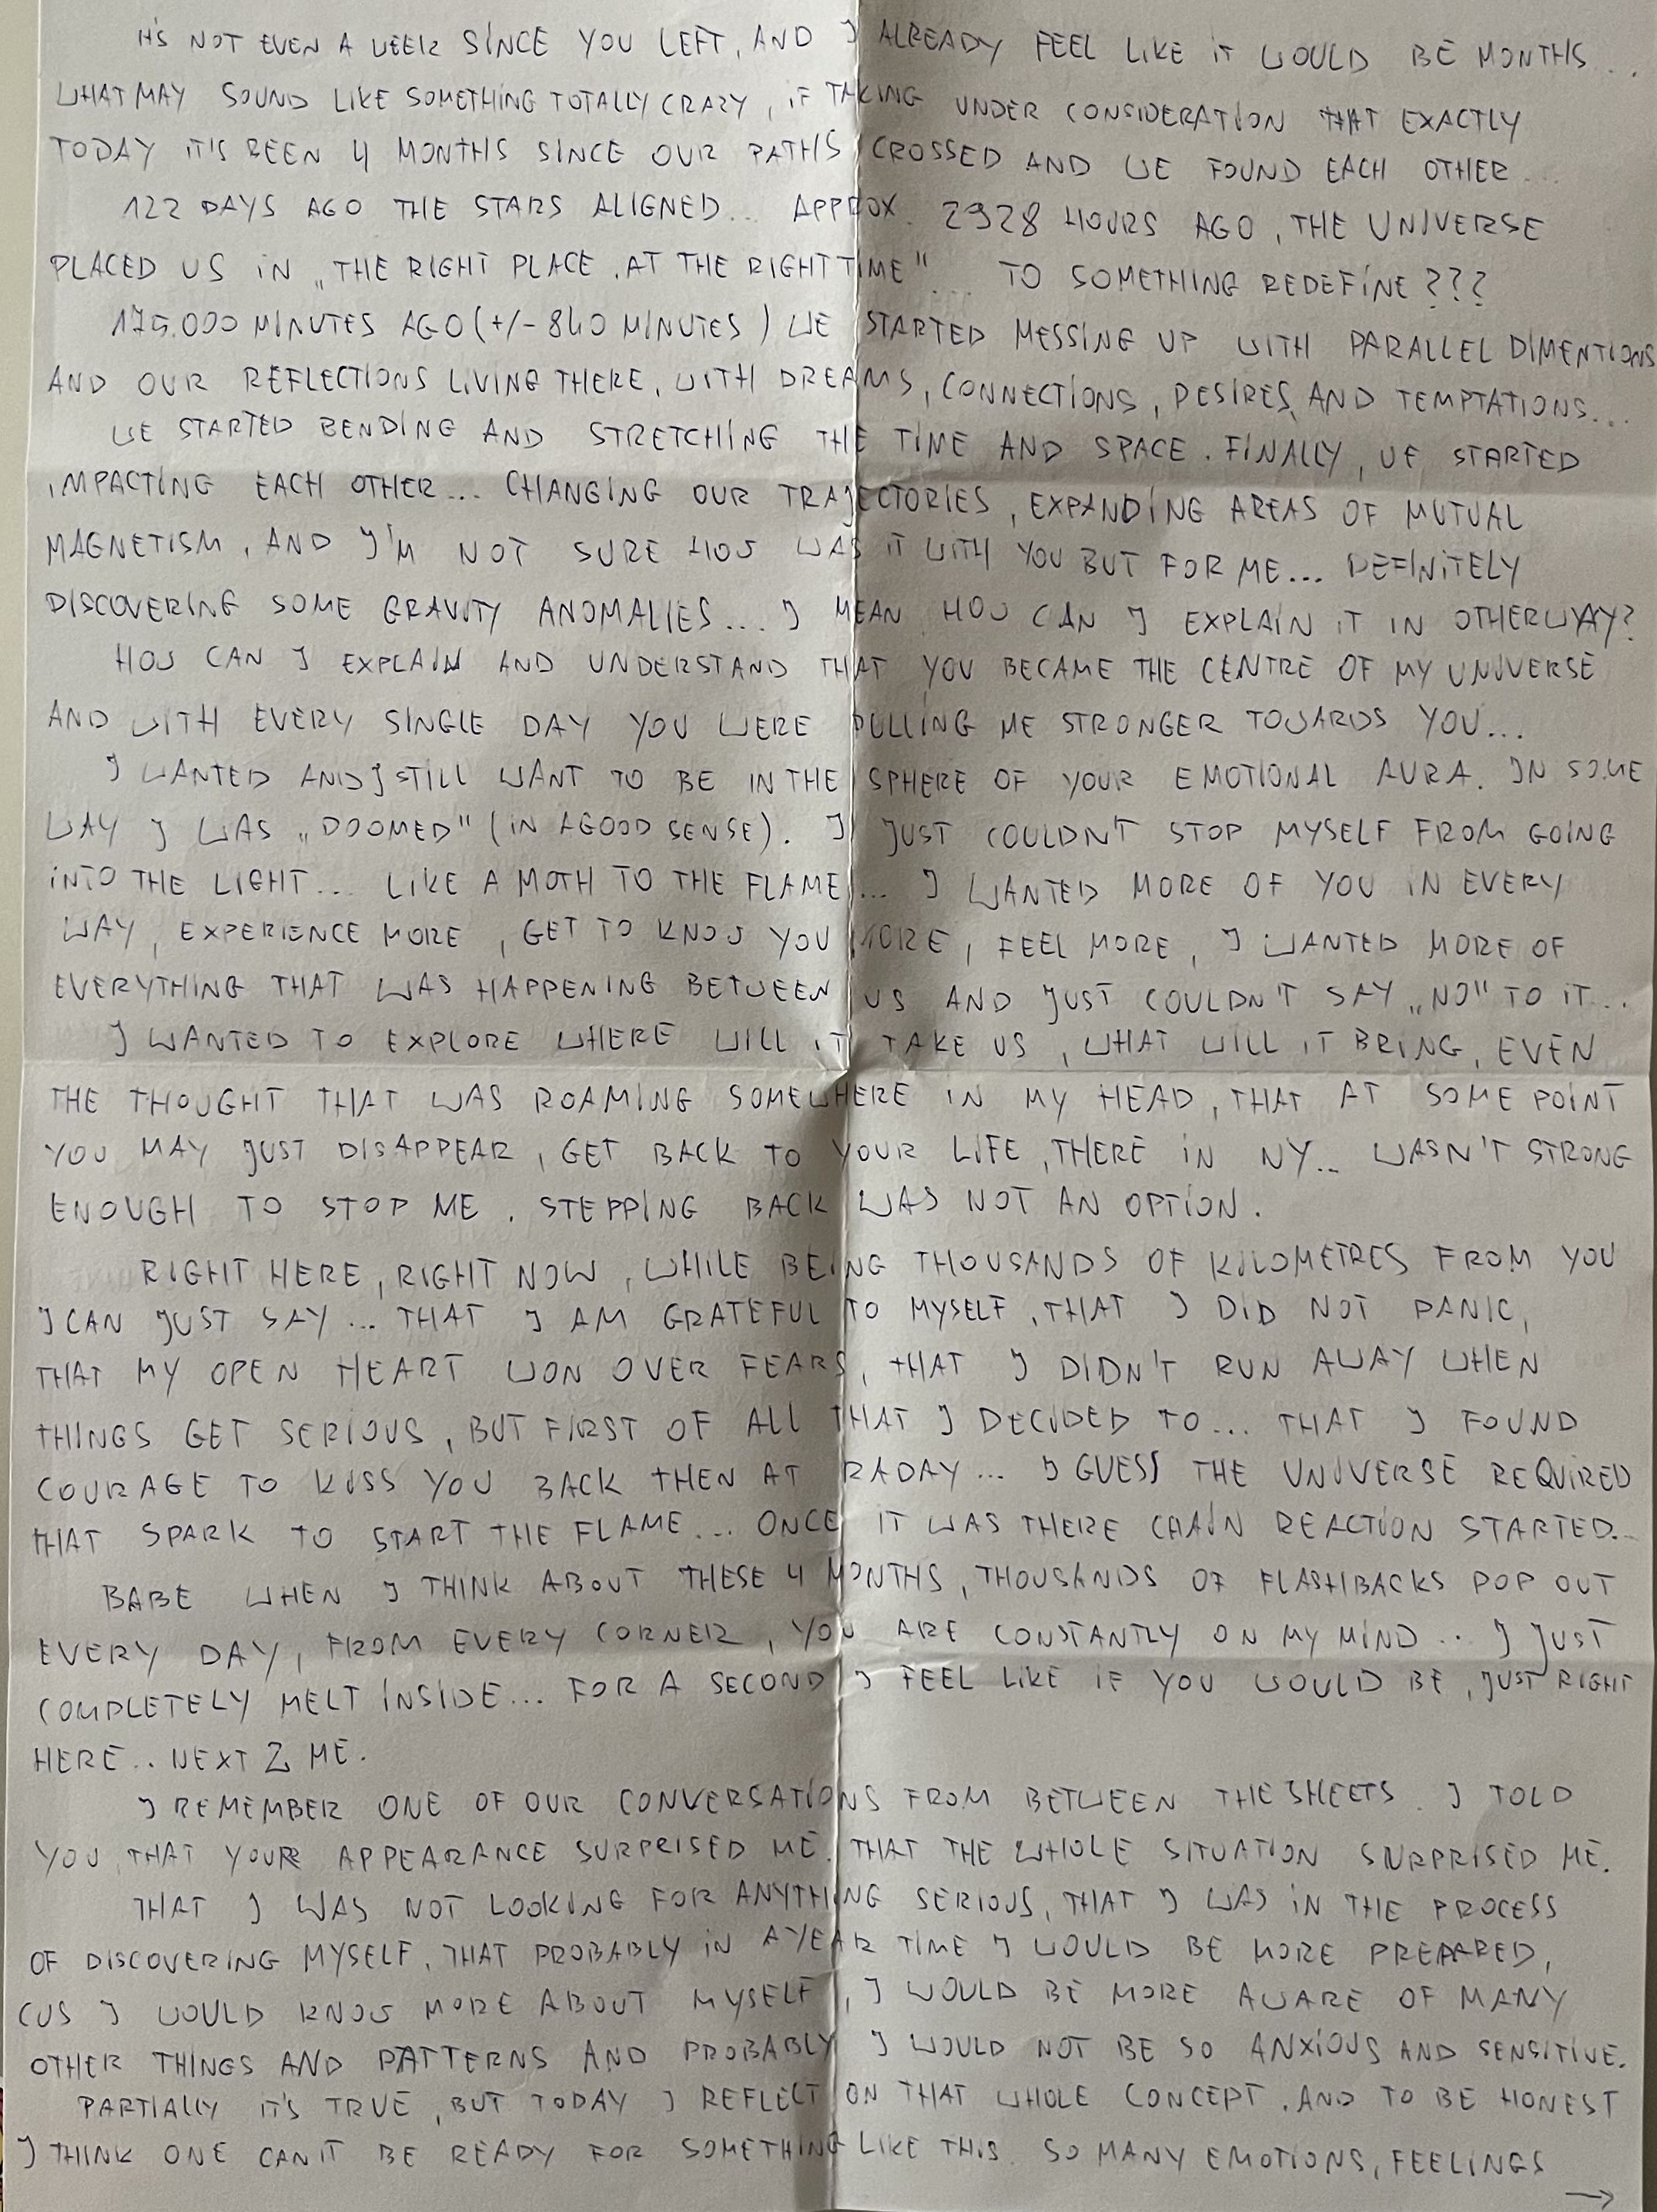 IT'S NOT EVEN A WEEK SINCE YOU LEFT, AND I ALREADY FEEL LIKE IT WOULD BE MONTHS...
WHAT MAY SOUND LIKE SOMETHING TOTALLY CRAZY, IF TAKING UNDER CONSIDERATION THAT EXACTLY
TODAY IT'S BEEN 4 MONTHS SINCE OUR PATHS CROSSED AND WE FOUND EACH OTHER...
122 DAYS AGO THE STARS ALIGNED... APPROX. 2928 HOURS AGO, THE UNIVERSE
PLACED US IN „THE RIGHT PLACE, AT THE RIGHT TIME"... TO SOMETHING REDEFINE???
175.000 MINUTES AGO (+/- 840 MINUTES) WE STARTED MESSING UP WITH PARALLEL DIMENTIONS
AND OUR REFLECTIONS LIVING THERE, WITH DREAMS, CONNECTIONS, DESIRES AND TEMPTATIONS...
WE STARTED BENDING AND STRETCHING THE TIME AND SPACE. FINALLY, WE STARTED
IMPACTING EACH OTHER... CHANGING OUR TRAJECTORIES, EXPANDING AREAS OF MUTUAL
MAGNETISM, AND I'M NOT SURE HOW WAS IT WITH YOU BUT FOR ME... DEFINITELY
DISCOVERING SOME GRAVITY ANOMALIES... I MEAN HOW CAN I EXPLAIN IT IN OTHERWAY?
HOW CAN I EXPLAIN AND UNDERSTAND THAT YOU BECAME THE CENTRE OF MY UNIVERSE
AND WITH EVERY SINGLE DAY YOU WERE PULLING ME STRONGER TOWARDS YOU...
I WANTED AND I STILL WANT TO BE IN THE SPHERE OF YOUR EMOTIONAL AURA. IN SOME
WAY I WAS „DOOMED" (IN A GOOD SENSE). I JUST COULDN'T STOP MYSELF FROM GOING
INTO THE LIGHT... LIKE A MOTH TO THE FLAME... I WANTED MORE OF YOU IN EVERY
WAY, EXPERIENCE MORE, GET TO KNOW YOU MORE, FEEL MORE, I WANTED MORE OF
EVERYTHING THAT WAS HAPPENING BETWEEN US AND JUST COULDN'T SAY „NO" TO IT...
I WANTED TO EXPLORE WHERE WILL IT TAKE US, WHAT WILL IT BRING, EVEN
THE THOUGHT THAT WAS ROAMING SOMEWHERE IN MY HEAD, THAT AT SOME POINT
YOU MAY JUST DISAPPEAR, GET BACK TO YOUR LIFE, THERE IN NY... WASN'T STRONG
ENOUGH TO STOP ME. STEPPING BACK WAS NOT AN OPTION.
RIGHT HERE, RIGHT NOW, WHILE BEING THOUSANDS OF KILOMETRES FROM YOU
I CAN JUST SAY... THAT I AM GRATEFUL TO MYSELF, THAT I DID NOT PANIC,
THAT MY OPEN HEART WON OVER FEARS, THAT I DIDN'T RUN AWAY WHEN
THINGS GET SERIOUS, BUT FIRST OF ALL THAT I DECIDED TO... THAT I FOUND
COURAGE TO KISS YOU BACK THEN AT RADAY... I GUESS THE UNIVERSE REQUIRED
THAT SPARK TO START THE FLAME... ONCE IT WAS THERE CHAIN REACTION STARTED...
BABE WHEN I THINK ABOUT THESE 4 MONTHS, THOUSANDS OF FLASHBACKS POP OUT
EVERY DAY, FROM EVERY CORNER, YOU ARE CONSTANTLY ON MY MIND... I JUST
COMPLETELY MELT INSIDE... FOR A SECOND I FEEL LIKE IF YOU WOULD BE, JUST RIGHT
HERE.. NEXT 2 ME.
I REMEMBER ONE OF OUR CONVERSATIONS FROM BETWEEN THE SHEETS. I TOLD
YOU, THAT YOUR APPEARANCE SURPRISED ME. THAT THE WHOLE SITUATION SURPRISED ME.
THAT I WAS NOT LOOKING FOR ANYTHING SERIOUS, THAT I WAS IN THE PROCESS
OF DISCOVERING MYSELF, THAT PROBABLY IN A YEAR TIME I WOULD BE MORE PREPARED,
CUS I WOULD KNOW MORE ABOUT MYSELF, I WOULD BE MORE AWARE OF MANY
OTHER THINGS AND PATTERNS AND PROBABLY I WOULD NOT BE SO ANXIOUS AND SENSITIVE.
PARTIALLY IT'S TRUE, BUT TODAY I REFLECT ON THAT WHOLE CONCEPT, AND TO BE HONEST
I THINK ONE CAN'T BE READY FOR SOMETHING LIKE THIS. SO MANY EMOTIONS, FEELINGS
→